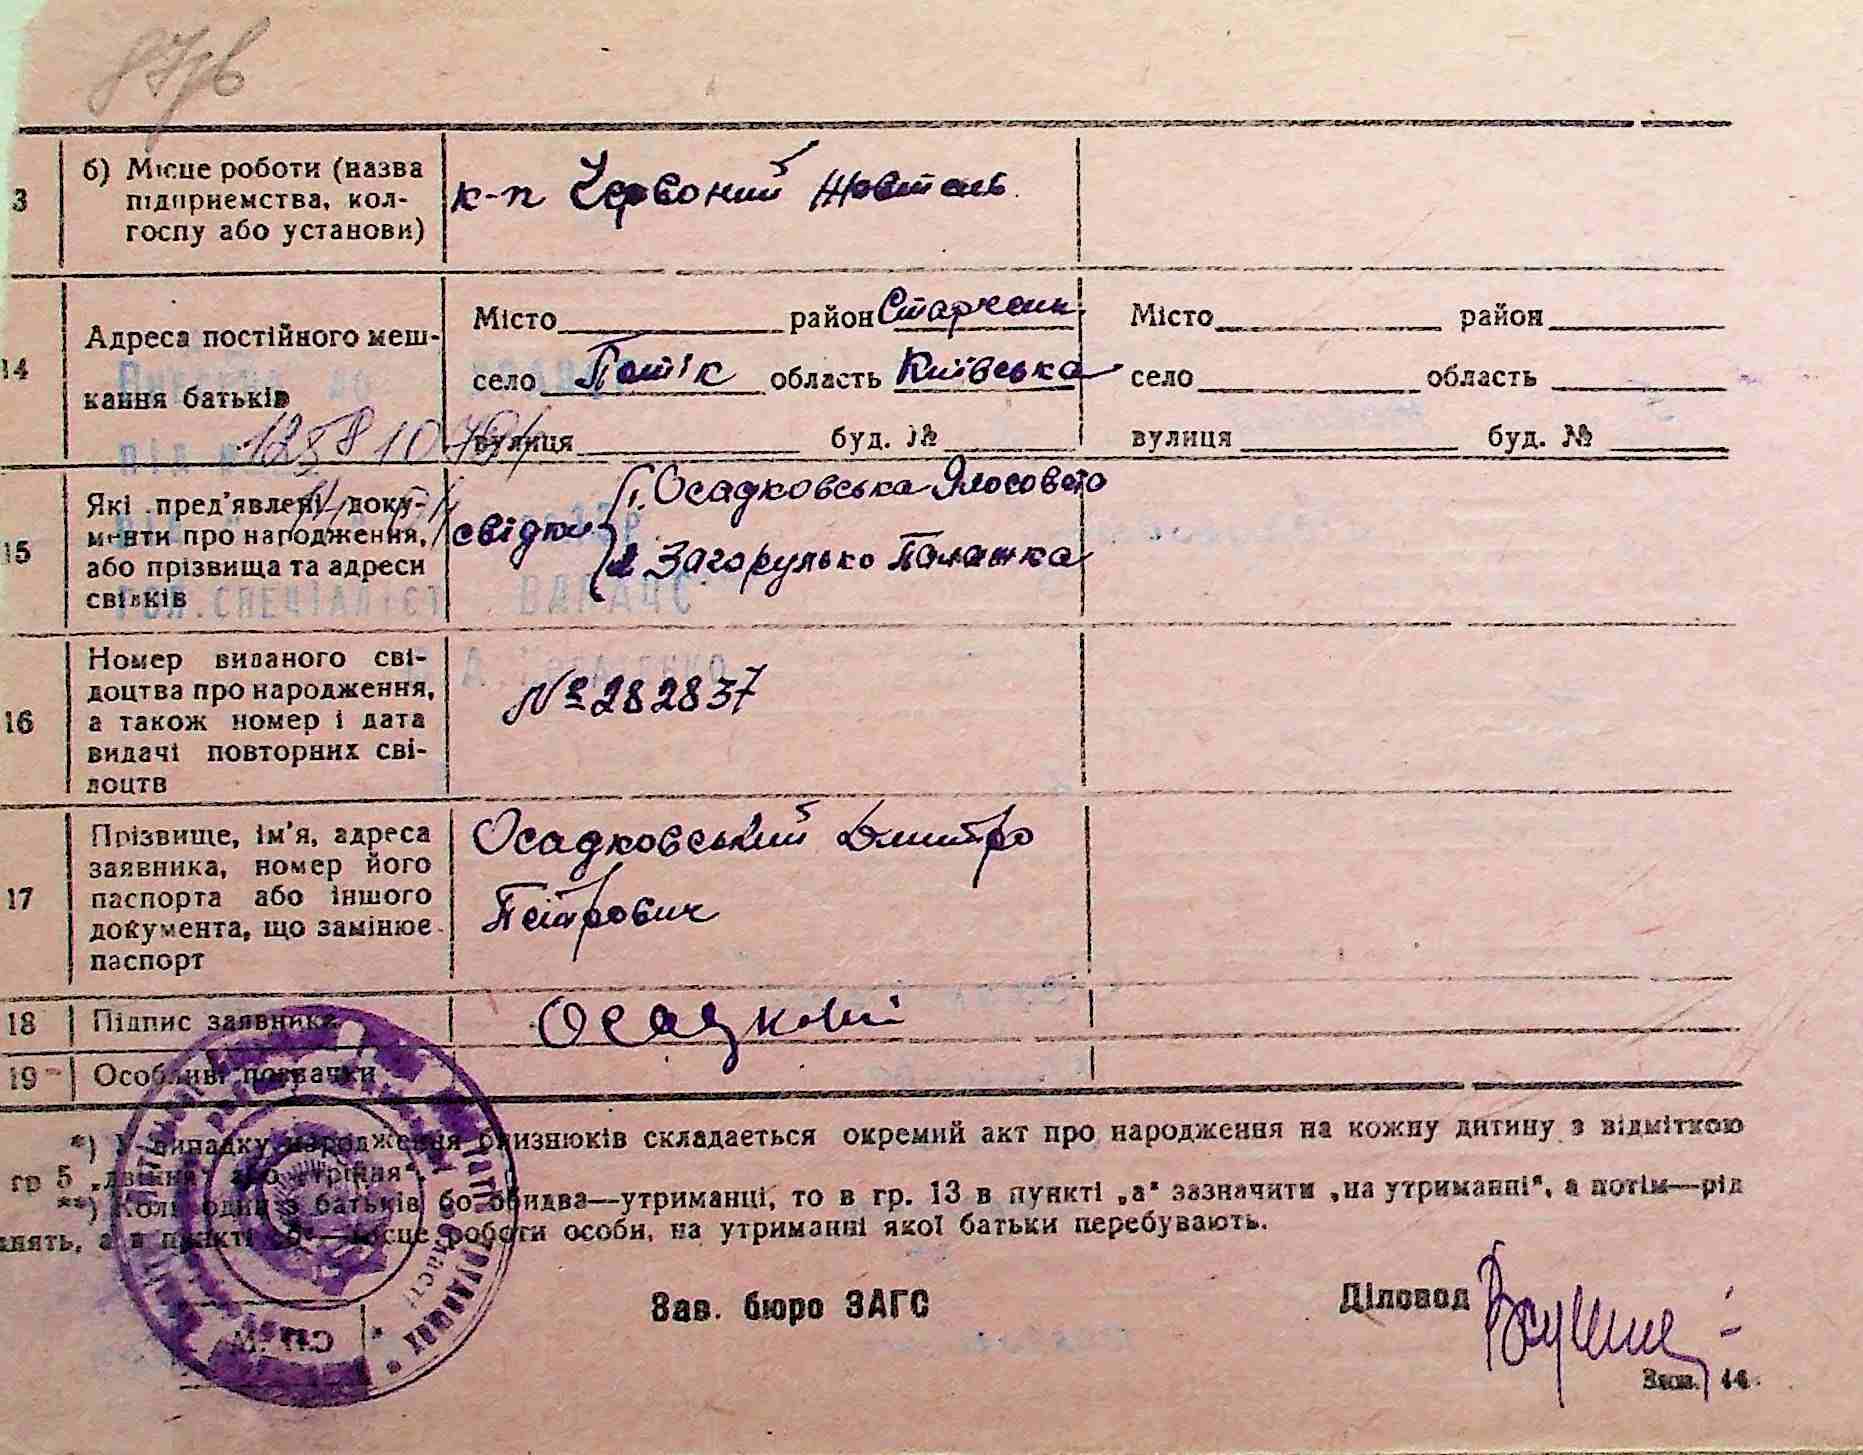 3 б) Місце роботи (назва
підприємства, кол-
госпу або установи)
к-п Червоний Жовтень
14 Адреса постійного меш-
кання батьків
Місто район
село Потік область Київська
вулиця буд. №
Місто район
село область
вулиця буд. №
15 Які пред'явлені доку-
менти про народження,
або прізвища та адреси
свідків
свідки 1. Осадковська
2 Загорулько Палажка
16 Номер виданого сві-
доцтва про народження,
а також номер і дата
видачі повторних сві-
доцтв
№ 282837
17 Прізвище, ім'я, адреса
заявника, номер його
паспорта або іншого
документа, що замінює
паспорт
Осадковський Дмитро
Петрович
18 Підпис заявника
19 Особливі позначки
*) У випадку народження близнюків складається окремий акт про народження на кожну дитину з відміткою
гр 5 „двійня" або „трійня".
**) Коли один з батьків бо обидва—утриманці, то в гр. 13 в пункті „а" зазначити „на утриманні", а потім—рід
анять, а в пункті „б"—місце роботи особи, на утриманні якої батьки перебувають.
Зав. бюро ЗАГС
Діловод
Зам. 44